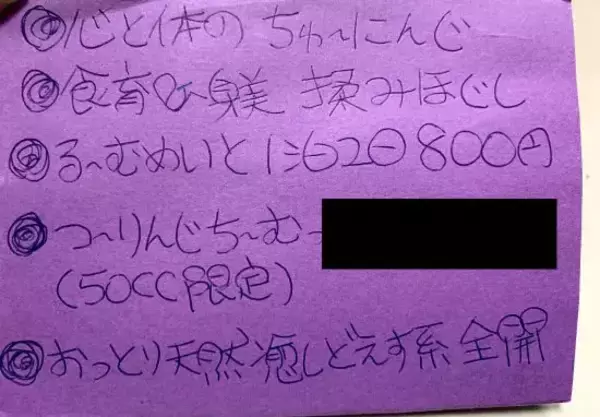 ◎心と体の ちゅ〜にんぐ
◎食育&美 揉みほぐし
◎る〜むめいと 1泊2日 800円
◎つ〜りんじち〜むっ
(50CC限定)
◎おっとり天然癒しどえす系 全開